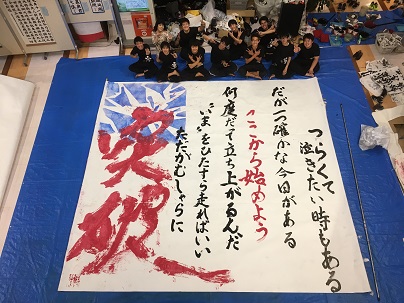 つらくて
泣きたい時もある
だが一つ確かな今日がある
ここから始めよう
何度だって立ち上がるんだ
“いま”をひたすら走ればいい
ただがむしゃらに
突破